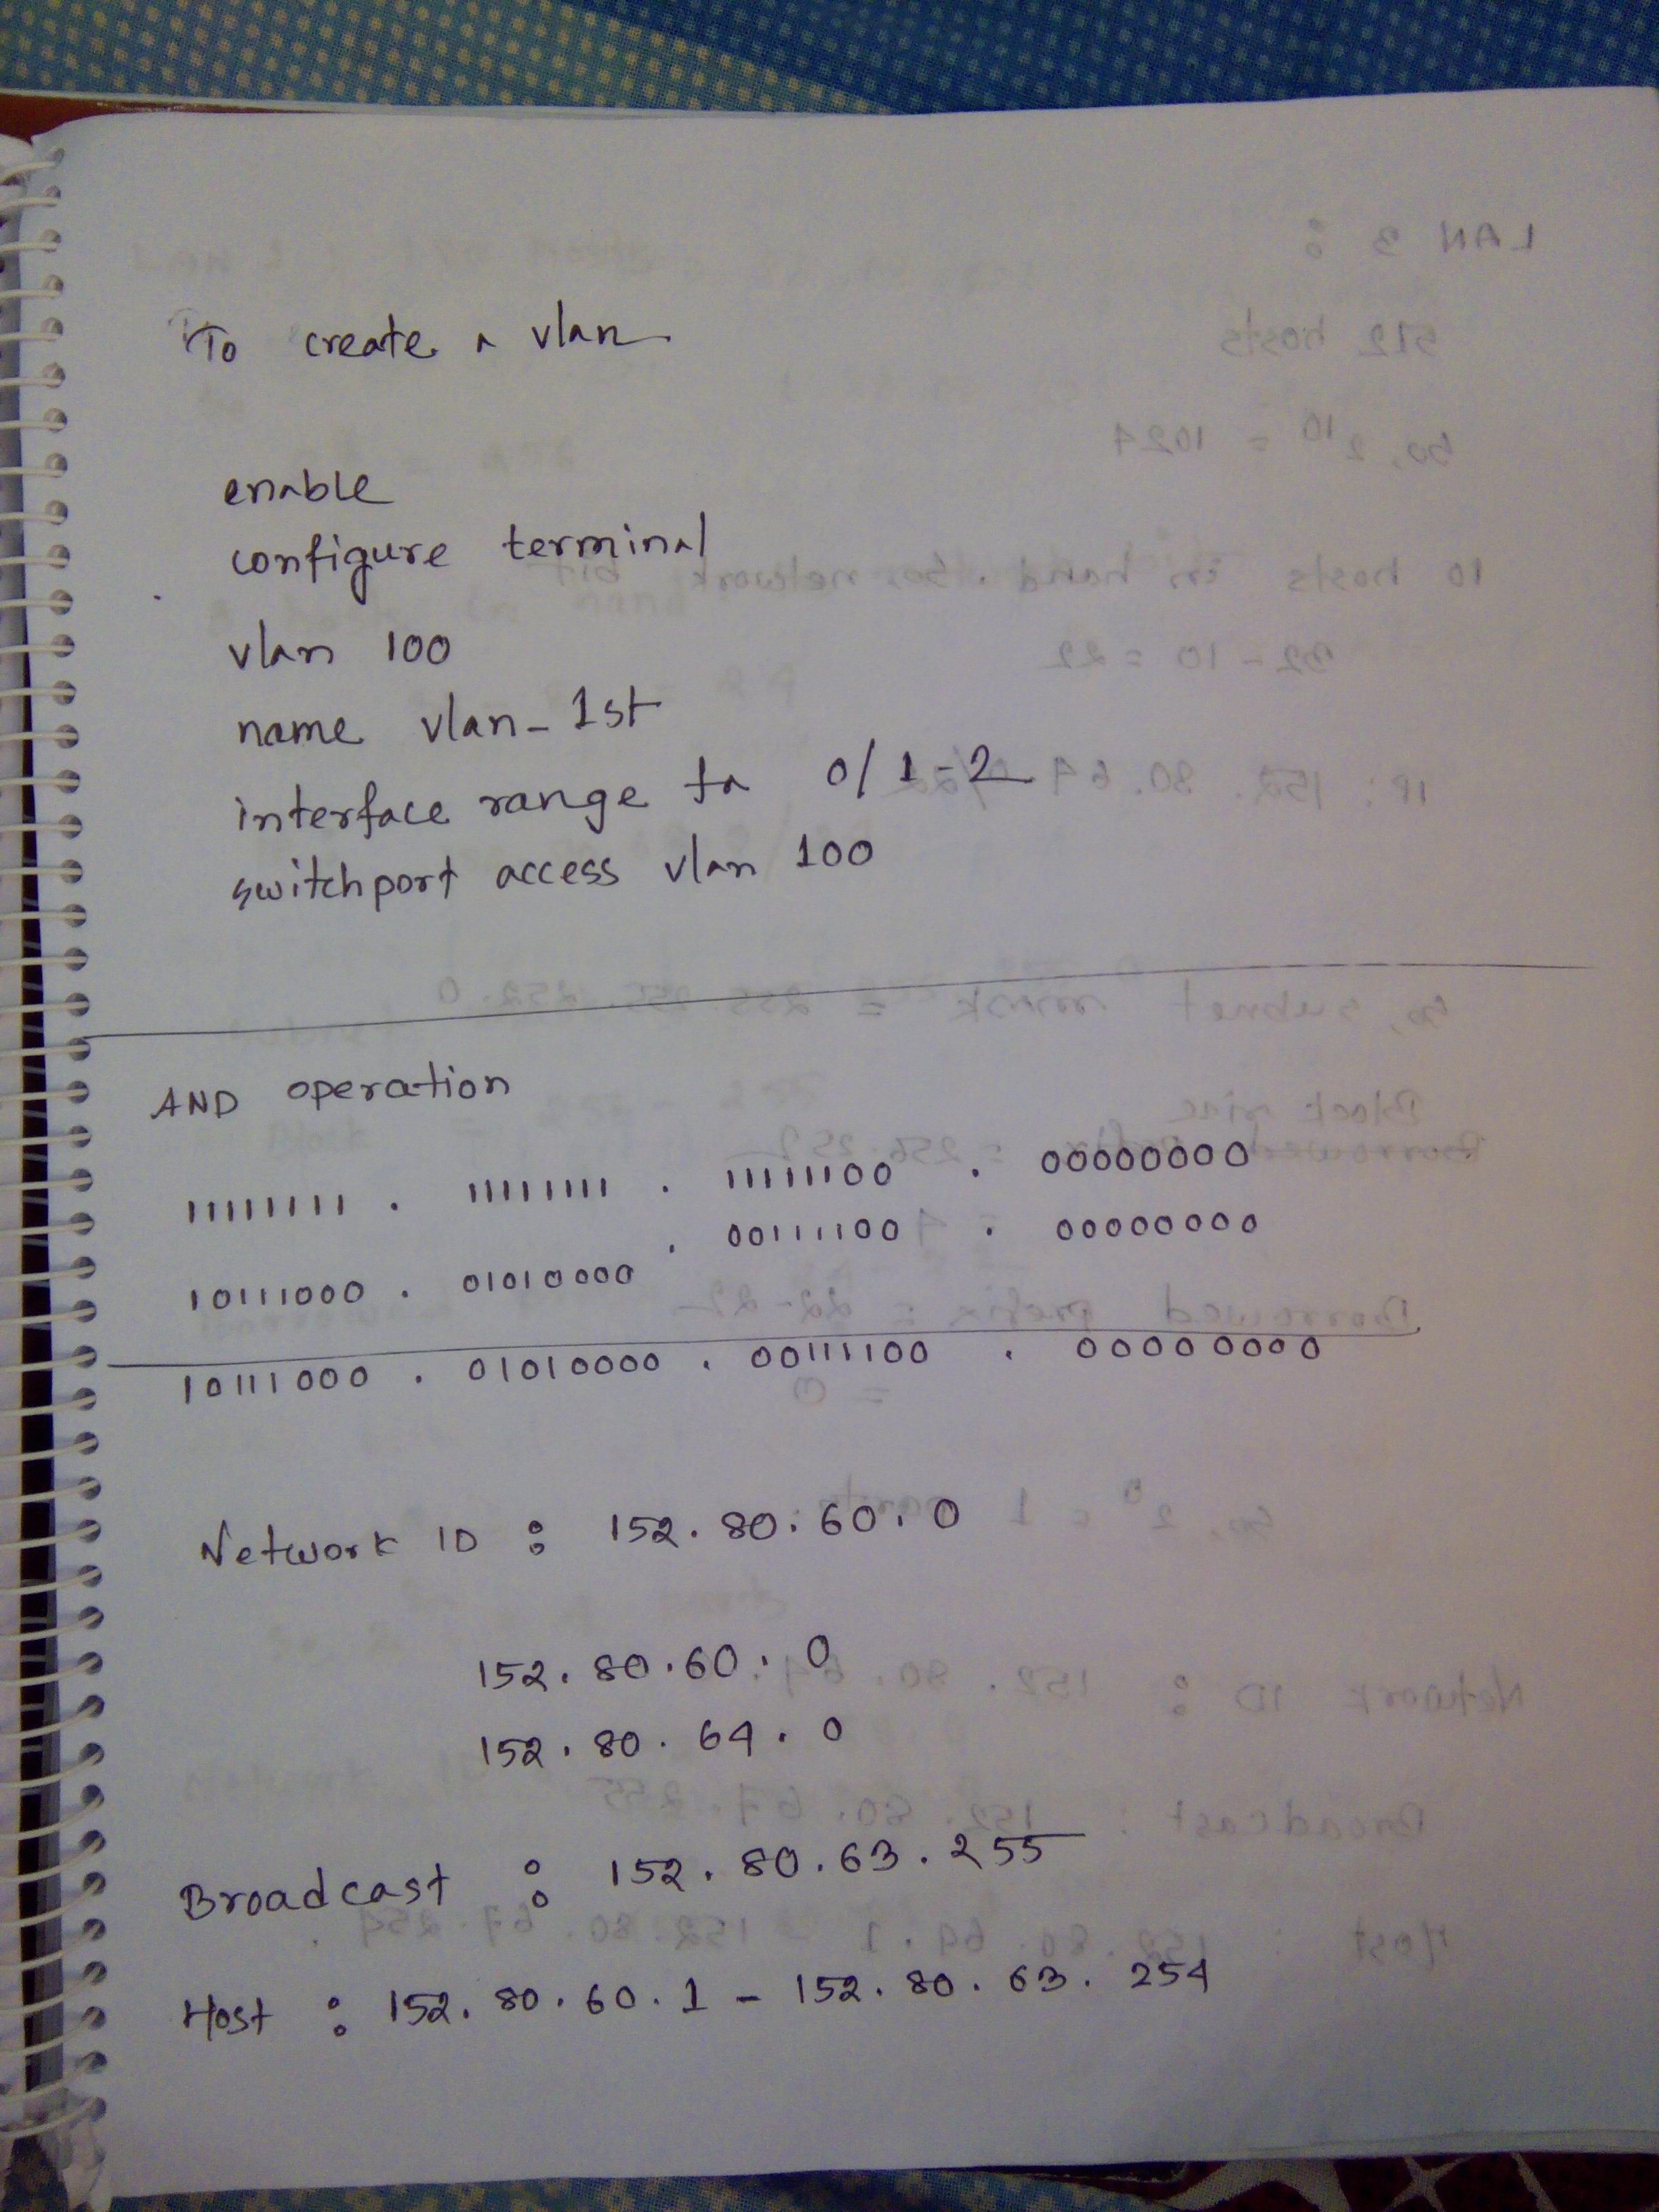 To create a vlan
enable
configure terminal
vlan 100
name vlan_1st
interface range fa 0/1-2
switchport access vlan 100
AND operation
11111111 . 11111111 . 11111100 . 00000000
10111000 . 01010000 . 00111100 . 00000000
10111000 . 01010000 . 00111100 . 00000000
Network ID : 152.80.60.0
152.80.60.0
152.80.64.0
Broadcast : 152.80.63.255
Host : 152.80.60.1 - 152.80.63.254